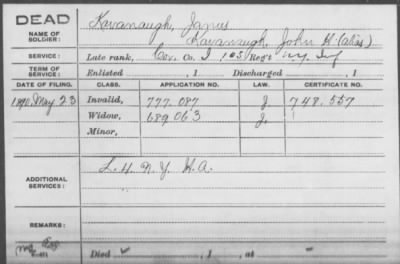 DEAD
NAME OF SOLDIER: Kavanaugh, James
Kavanaugh, John H (alias)
SERVICE: Late rank, Co. I 103 Reg't N.Y. Inf
TERM OF SERVICE: Enlisted , 1 Discharged , 1
DATE OF FILING. CLASS. APPLICATION NO. LAW. CERTIFICATE NO.
1890, May 23 Invalid, 777.087 J. 748.557
Widow, 689.063 J.
Minor,
ADDITIONAL SERVICES: L. 4. N.Y. H.A.
REMARKS:
Died , 1 , at